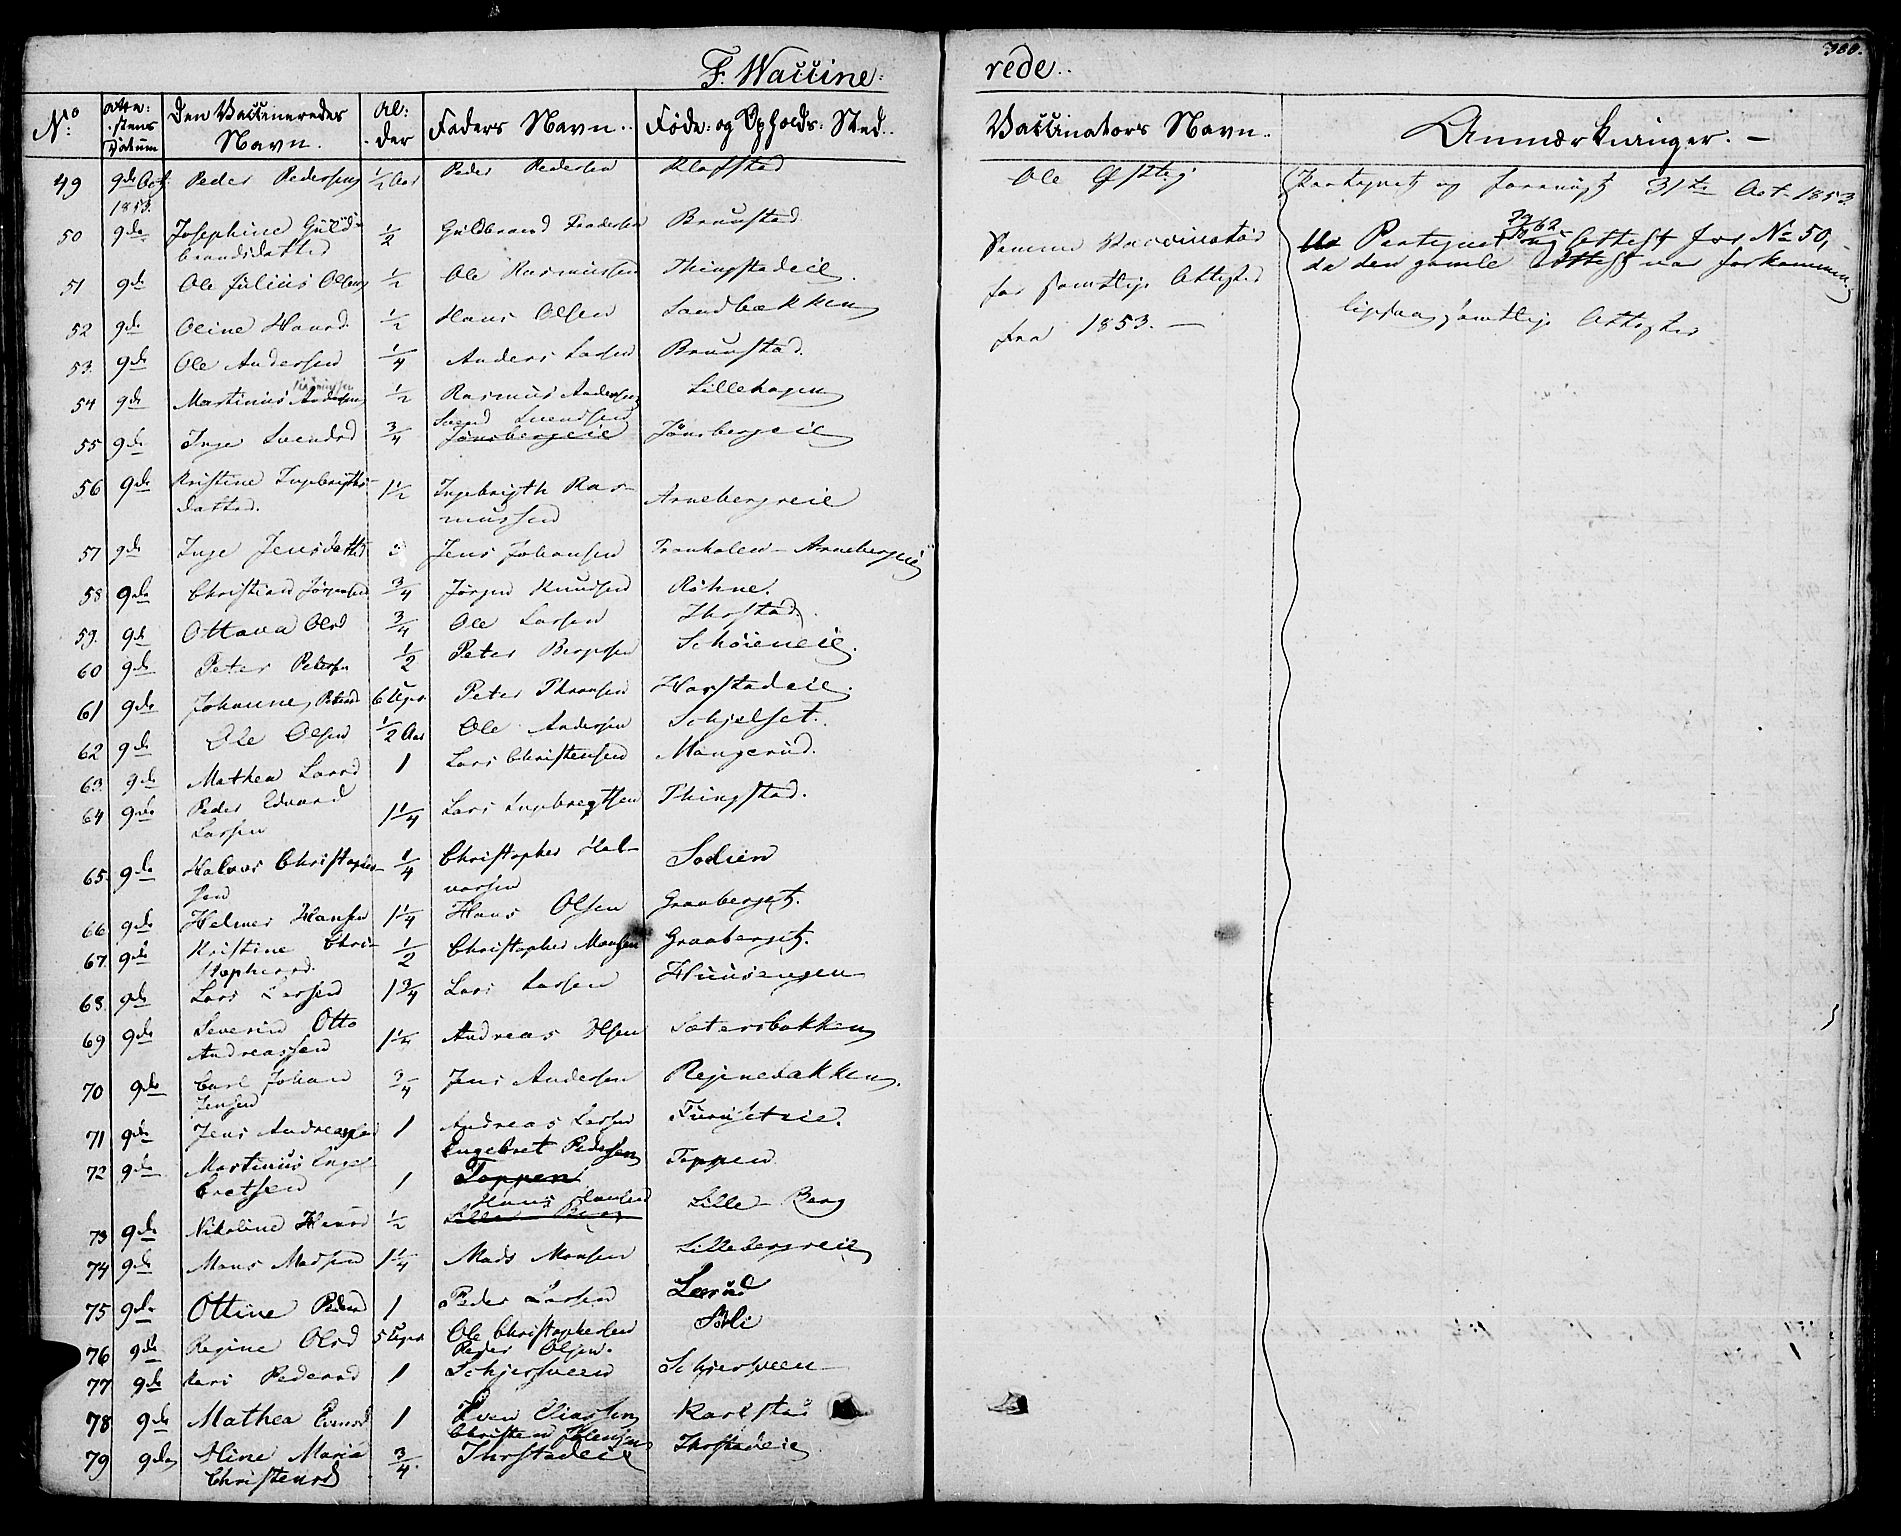 F. Waccine=
rede..
No Atte=stens Datum Den Vaccineredes Navn. Al=der Faders Navn.. Føde= og Opholds= Sted..
Vaccinators Navn.. Anmærkninger. —
49 9de Oct. 1853. Peder Pedersen 1/2 Aar Peder Pedersen Klofstad
50 9de Josephine Guldbrandsdatter 1/2 Guldbrand Brunstad
51 9de Ole Julius Olsen 1/2 Ole Rasmussen Thingstadeie.
52 9de Oline Hansd. 1/2 Hans Olsen Sandbækken
53. 9de Ole Andersen 1/4 Anders Larsen Brunstad.
54 9de Martinius Andersen 1/2 Rasmus Andersen Lillehagen
55 9de Inge Svendsd 3/4 Svend Svendsen Jønsbergeie Jønsbergeie
56 9de Kristine Ingebrigtsdatter. 1 1/2 Ingebrigth Rasmussen Arnebergeie
57 9de Inge Jensdatter 5 Jens Johansen Arnebergeie
58 9de Christian Jørgensen 3/4 Jørgen Knudsen Røhne.
59. 9de Ottava Olsd 3/4 Ole Larsen Thorstad.
60 9de Peter Petersen 1/2 Peter Bergesen Schøieneie.
61 9de Johanne Petersd 6 Uger Peter Harstadeie.
62 9de Ole Olsen 1/2 Aar Ole Andersen Schjelset.
63. 9de Mathea Larsd 1 Lars Christensen Mangerud.
64 9de Peder Edvard Larsen 1 1/4 Lars Ingebregtsen Thingstad.
65. 9de Halvor Christophersen 1/4 Christopher Halvorsen Solien
66 9de Helmer Hansen 1 1/4 Hans Olsen Graaberget.
67. 9de Kristine Christophersd. 1/2 Christopher Monsen Graaberget.
68. 9de Lars Larsen 1 3/4 Lars Larsen Huusengen
69 9de Severin Otto Andreassen 1 1/4 Andreas Olsen Sætersbakken
70 9de Carl Johan Jensen 3/4 Jens Andersen
71 9de Jens Andreassen 1 Andreas Larsen Furuseteie.
72 9de Martinius Engebretsen 1 Engebret Pedersen Toppen Toppen
73 9de Nikoline Hansd 1/2 Hans Hansen Lille Berg Lille Berg
74 9de Mons Madsen 1 1/4 Mads Monsen Lillebergeie
75 9de Ottine Pedersd 1 Peder Larsen Lerud
76 9de Regine Olsd 5 Uger Ole Christophersen Sōli
77 9de Kari Pedersd 1 Peder Olsen. Schjersveen Schjersveen
78 9de Mathea Evensd 1 Even Eliassen Karlstad
79 9de Aline Maria Christensd 3/4. Christen Thorstadeie Thorstadeie
Ole Østlig
Samme Vaccinatør
for samtlige Attester
fra 1853. —
Protegnet og foreviist 31te Oct. 1853.
Protegnet og Attest for No 50,
da den gamle Attest var forkommen
ligesaa samtlige Attester